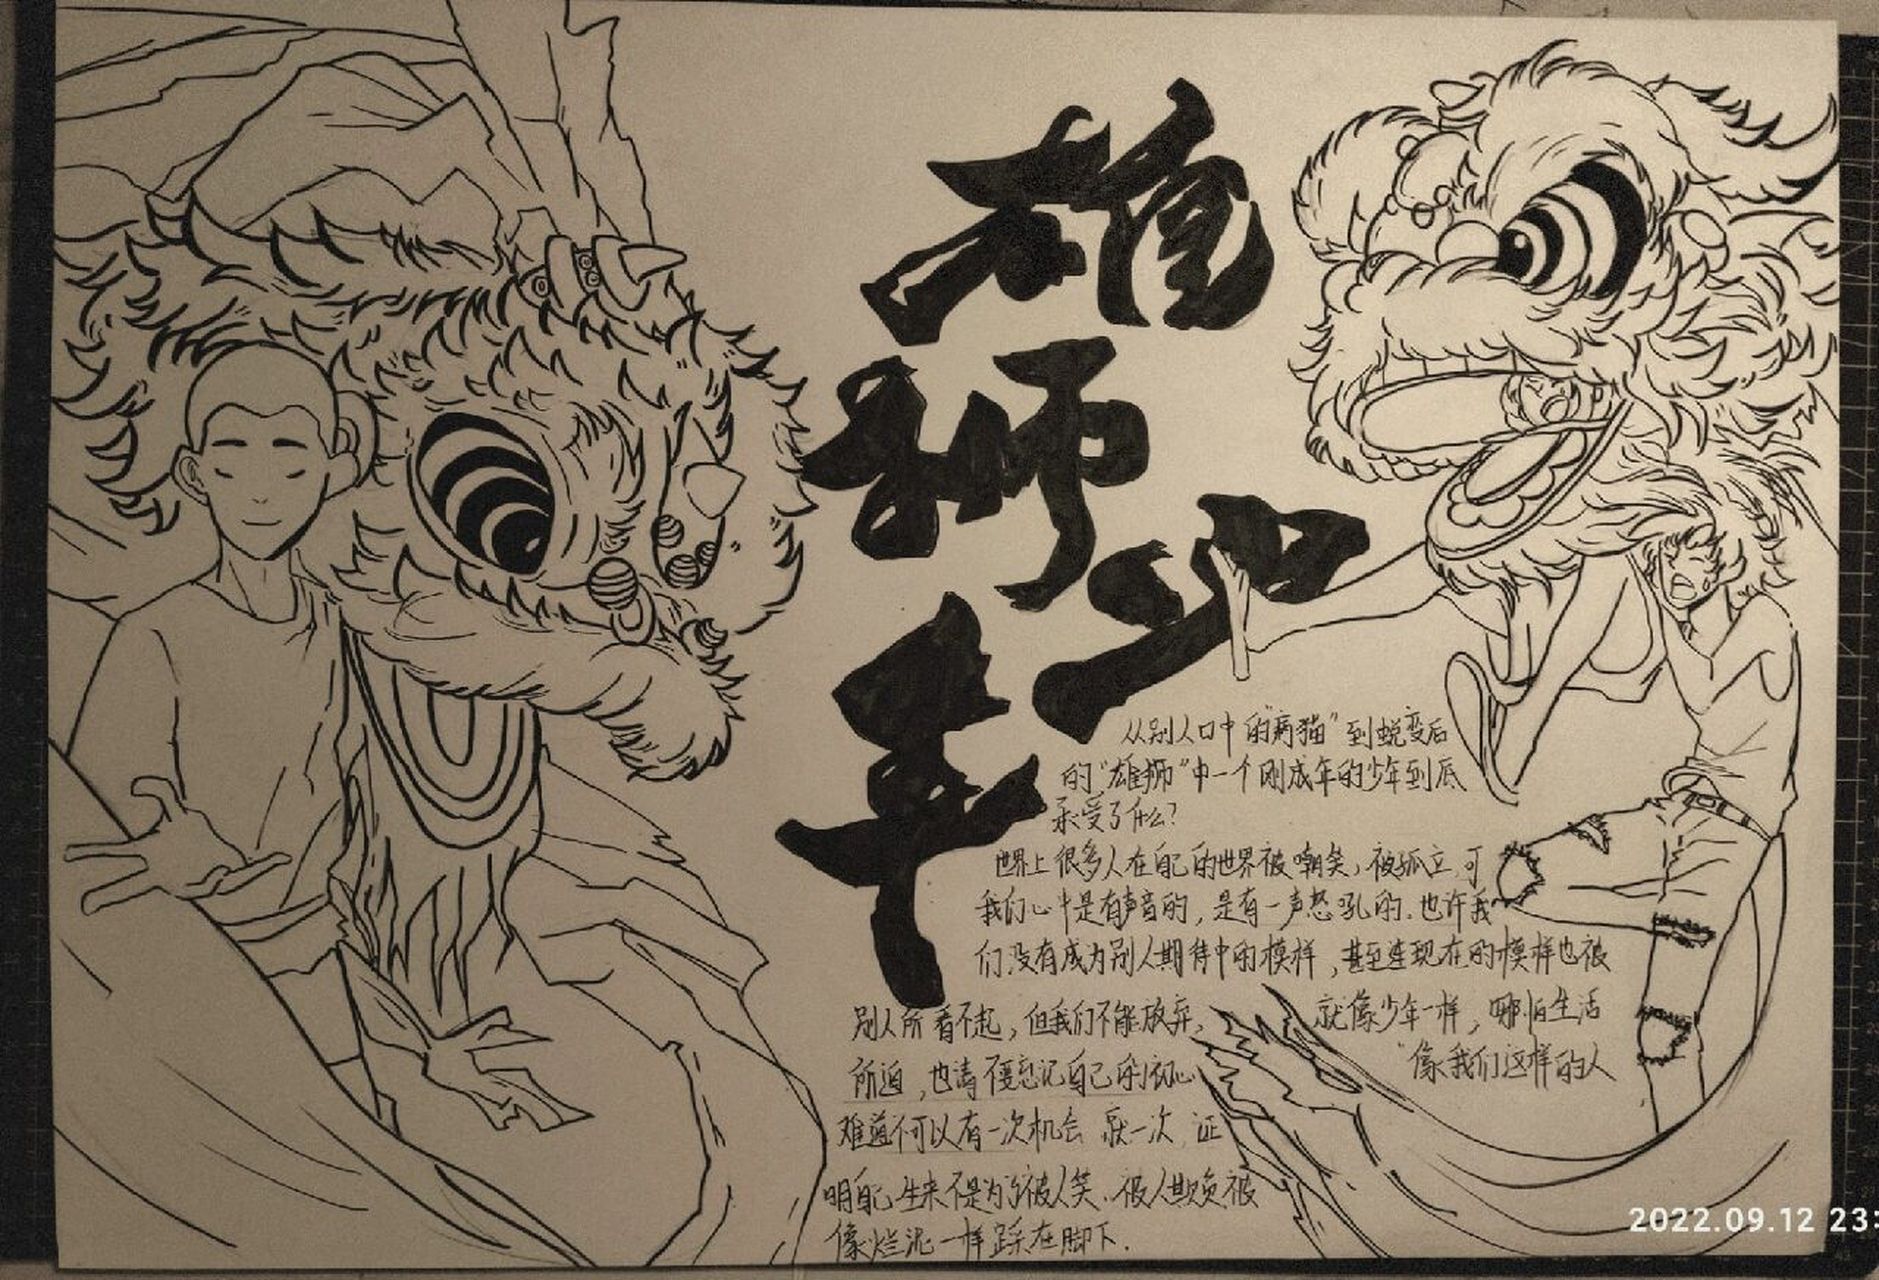 雄
狮
少
年
从别人口中的"病猫"到蜕变后
的"雄狮"中一个刚成年的少年到底
承受了什么?
世界上很多人在自己的世界被嘲笑,被孤立,可
我们心中是有声音的,是有一声怒吼的.也许我
们没有成为别人期待中的模样,甚至连现在的模样也被
别人所看不起,但我们不能放弃, 就像少年一样,哪怕生活
所迫,也请不要忘记自己的初心 "像我们这样的人
难道不可以有一次机会 一次 证
明自己生来不是为了被人笑、被人欺负被
像烂泥一样踩在脚下.
2022.09.12 23: